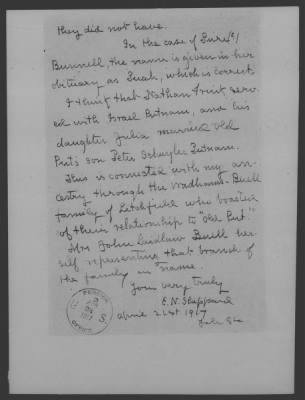 they did not have.
In the case of
Bunnell, the name is given in her
obituary as Luah, which is correct.
I think that Nathan Frink serv-
ed with Israel Putnam, and his
daughter Julia married Old
Put's son Peter Schuyler Putnam.
This is connected with my an-
cestry through the Wadhams-Buell
family of Litchfield who boasted
of their relationship to "Old Put."
Mrs John Laidlaw Buell her-
self representing that branch of
the family in name.
Yours very truly
E. N. Sheppard
April 21st 1917
PENSION
OFFICE
U S
1917